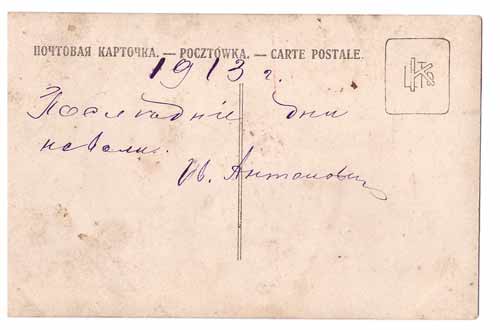 ПОЧТОВАЯ КАРТОЧКА. — POCZTÓWKA. — CARTE POSTALE.
1913 г.
Последніе дни
неволи.
Ив. Антонович